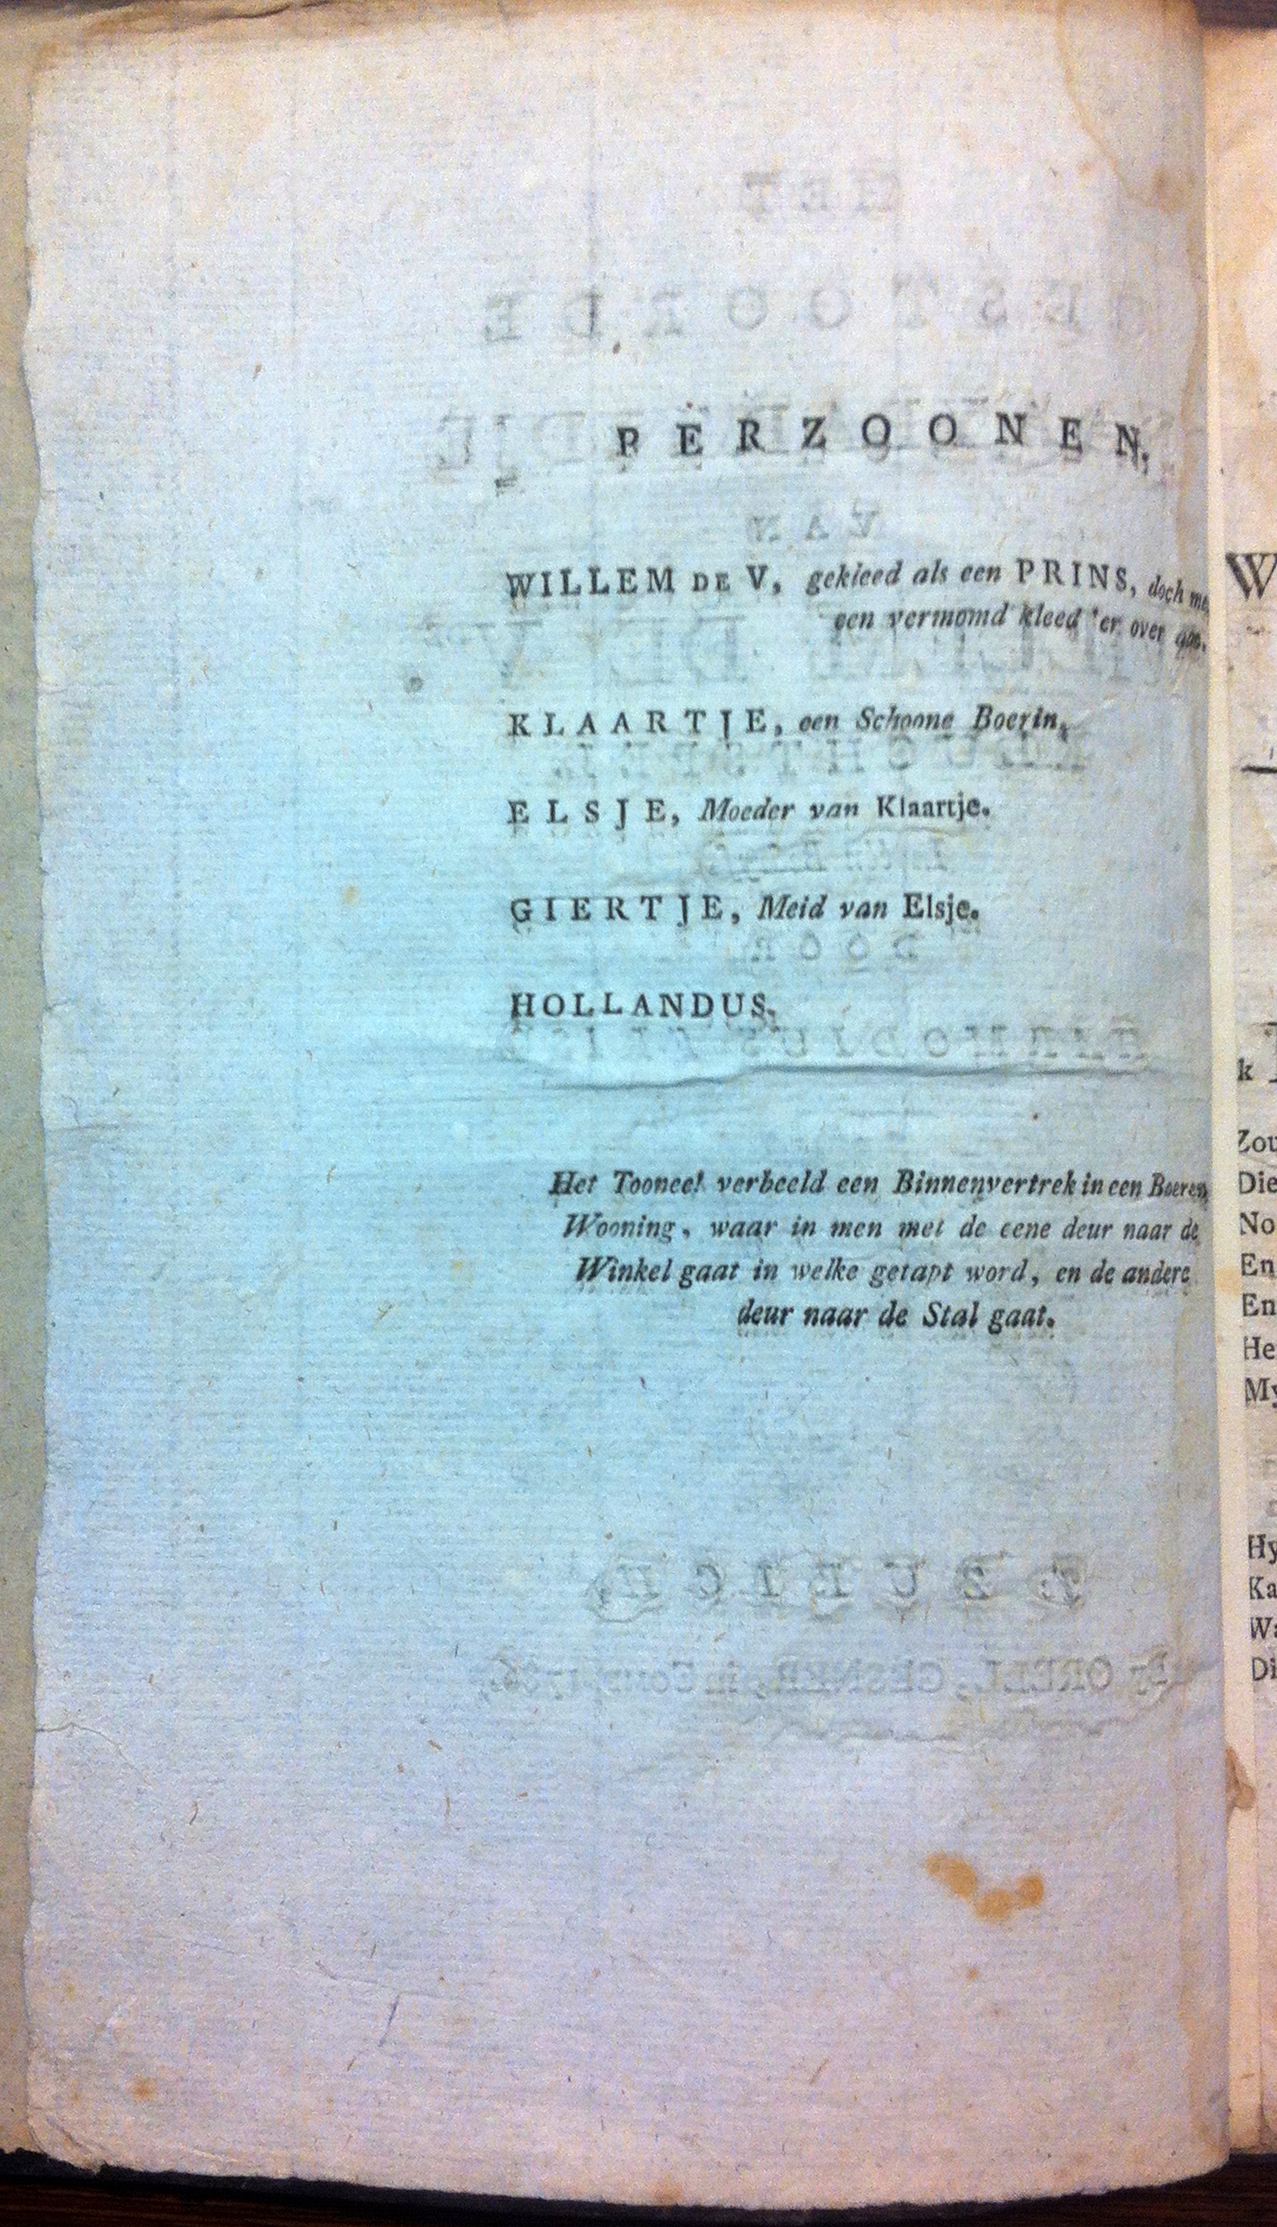 PERZOONEN,
WILLEM DE V, gekleed als een PRINS, doch met
een vermomd kleed 'er over aan.
KLAARTJE, een Schoone Boerin,
ELSJE, Moeder van Klaartje.
GIERTJE, Meid van Elsje.
HOLLANDUS.
Het Tooneel verbeeld een Binnenvertrek in een Boeren
Wooning, waar in men met de eene deur naar de
Winkel gaat in welke getapt word, en de andere
deur naar de Stal gaat.
W
k
Zou
Die
No
En
En
He
My
Hy
Ka
Wa
Di